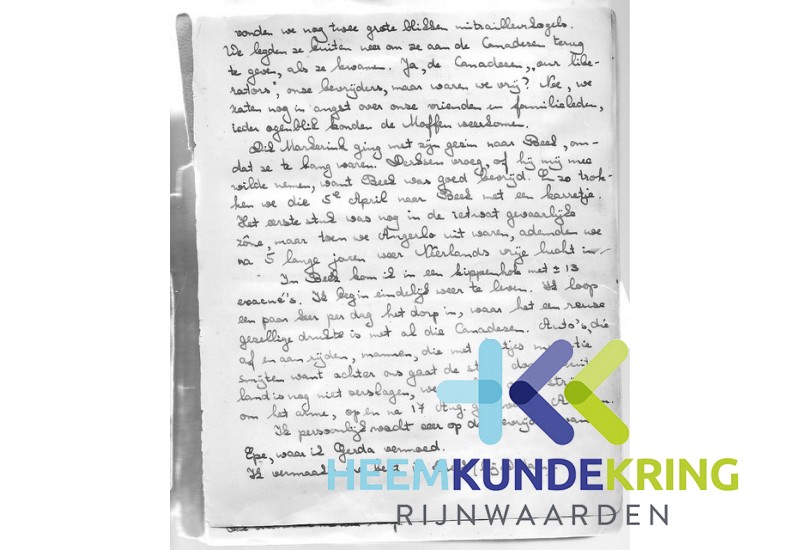 vonden we nog twee grote blikken mitrailleurkogels.
We legden ze buiten neer om ze aan de Canadezen terug
te geven, als ze kwamen. Ja, de Canadezen, „our libe-
rators", onze bevrijders, maar waren we vrij? Nee, we
zaten nog in angst over onze vrienden en familieleden,
ieder ogenblik konden de Moffen weerkomen.
Dik Markerink ging met zijn gezin naar Beek, om-
dat ze te bang waren. Derksen vroeg, of hij mij mee
wilde nemen, want Beek was goed bevrijd. En zo trok-
ken we die 5e April naar Beek met een karretje.
Het eerste stuk was nog in de retrait gevaarlijke
zône, maar toen we Angerlo uit waren, ademden we
na 5 lange jaren weer Nederlands vrije lucht in
In Beek kom ik in een kippenhok met ± 13
evacué's. Ik begin eindelijk weer te leven. Ik loop
een paar keer per dag het dorp in, waar het een reuze
gezellige drukte is met al die Canadezen. Auto's, die
af en aan rijden, mannen, die met
smijten want achter ons gaat de
land is nog niet verslagen, we
om het arme, op en na 17 Aug.
Ik persoonlijk wacht zeer op de van
Epe, waar ik Gerda vermoed.
Ik
HEEMKUNDEKRING
RIJNWAARDEN